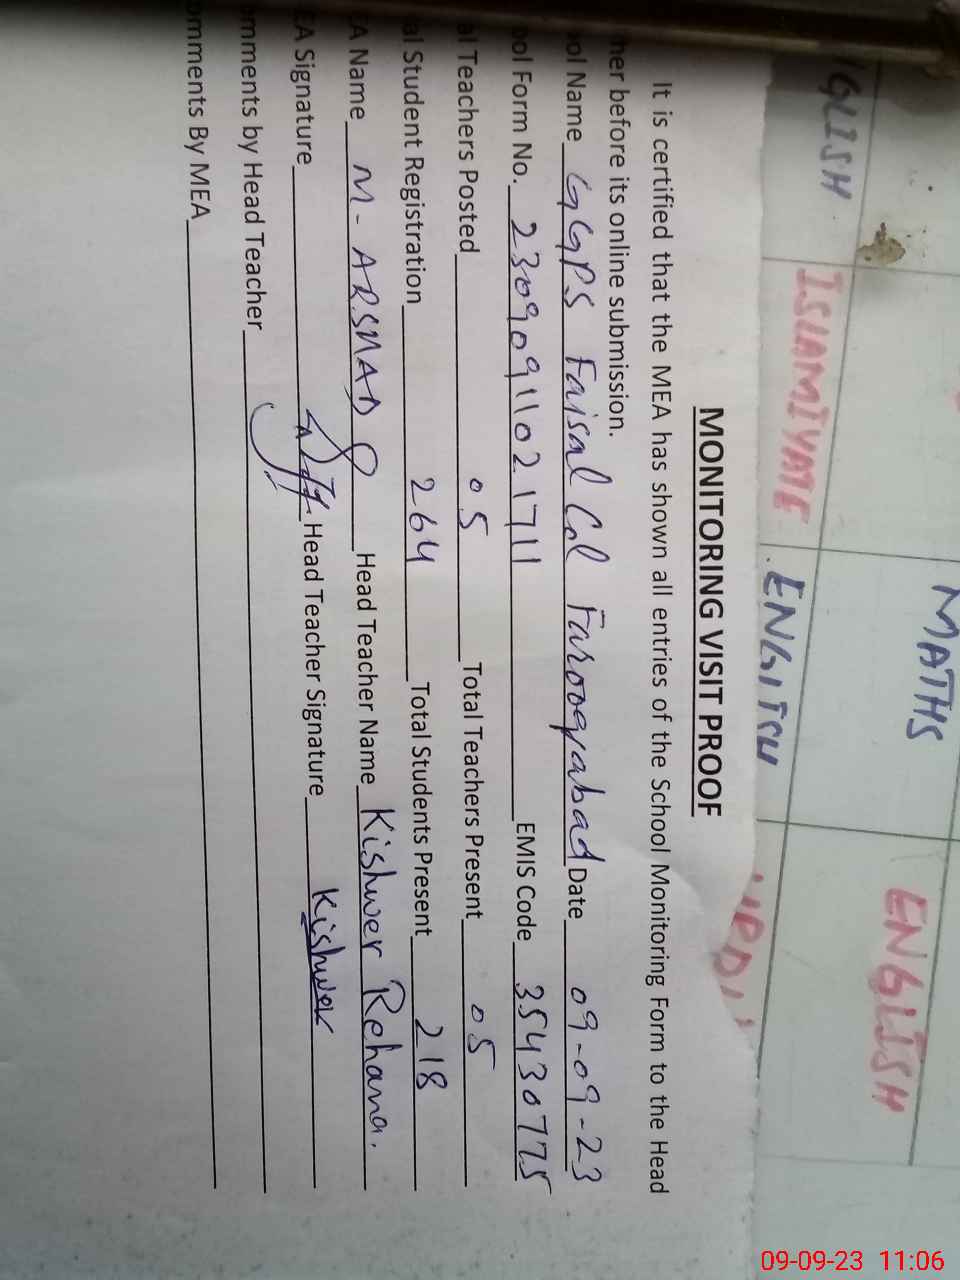 IGLISH
ISLAMIYAT
ENGLISH
MATHS
ENGLISH
URDU
MONITORING VISIT PROOF
It is certified that the MEA has shown all entries of the School Monitoring Form to the Head
her before its online submission.
ool Name GGPS Faisal Col Farooqabad Date 09-09-23
ool Form No. 2309091102 1711 EMIS Code 35430775
al Teachers Posted 05 Total Teachers Present 05
al Student Registration 264 Total Students Present 218
EA Name M-ARSHAD Head Teacher Name Kishwer Rehana.
EA Signature Head Teacher Signature Kishwer
omments by Head Teacher
omments By MEA
09-09-23 11:06